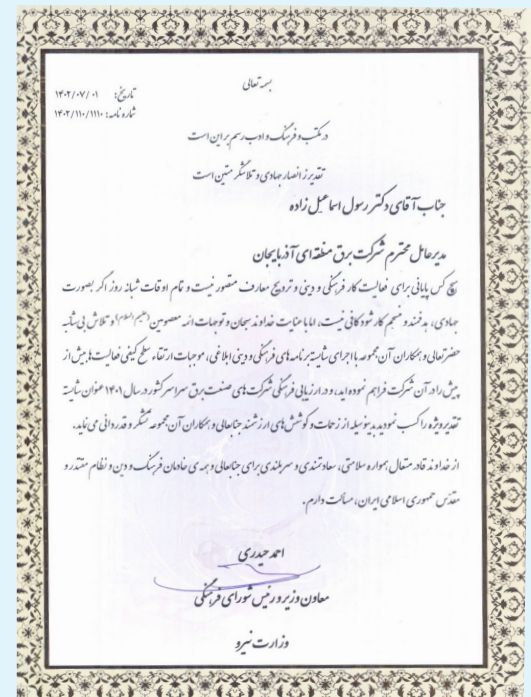 بسمه تعالی
تاریخ: ۱۴۰۲/۰۷/۰۱
شماره نامه: ۱۴۰۲/۱۱۰/۱۱۱۰
در مکتب و فرهنگ و ادب رسم بر این است
تقدیر ز انصار جهادی و تلاشگر متین است
جناب آقای دکتر رسول اسماعیل زاده
مدیرعامل محترم شرکت برق منطقه‌ای آذربایجان
هیچ کس پایانی برای فعالیت کار فرهنگی و دینی و ترویج معارف متصور نیست و تمام اوقات شبانه روز اگر بصورت
جهادی، هدفمند و منسجم کار شود کافی نیست، اما با عنایت خداوند سبحان و توجهات ائمه معصومین (علیهم السلام) و تلاش بی شائبه
حضرتعالی و همکاران آن مجموعه با اجرای شایسته برنامه های فرهنگی و دینی ابلاغی، موجبات ارتقاء سطح کیفی فعالیت ها بیش از
پیش را در آن شرکت فراهم نموده اید، و در ارزیابی فرهنگی شرکت های صنعت برق سراسر کشور در سال ۱۴۰۱ عنوان شایسته
تقدیر ویژه را کسب نمودید بدینوسیله از زحمات و کوشش های ارزشمند جنابعالی و همکاران آن مجموعه تشکر و قدردانی می نماید.
از خداوند قادر متعال همواره سلامتی، سعادتمندی و سربلندی برای جنابعالی و همه ی خادمان فرهنگ و دین و نظام مقتدر و
مقدس جمهوری اسلامی ایران، مسألت دارم.
احمد حیدری
معاون وزیر و رئیس شورای فرهنگی
وزارت نیرو